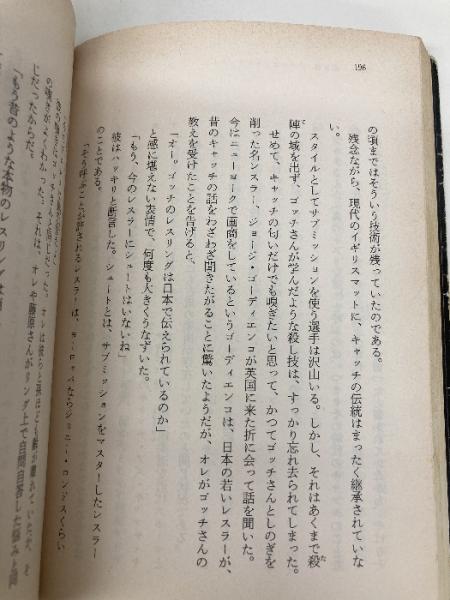 196
の頃まではそういう技術が残っていたのである。
残念ながら、現代のイギリスマットに、キャッチの伝統はまったく継承されていな
い。
スタイルとしてサブミッションを使う選手は沢山いる。しかし、それはあくまで殺
陣の域を出ず、ゴッチさんが学んだような殺し技は、すっかり忘れ去られてしまった。
せめて、キャッチの匂いだけでも嗅ぎたいと思って、かつてゴッチさんとしのぎを
削った名レスラー、ジョージ・ゴーディエンコが英国に来た折に会って話を聞いた。
今はニューヨークで画商をしているというゴーディエンコは、日本の若いレスラーが、
昔のキャッチの話をわざわざ聞きたがることに驚いたようだが、オレがゴッチさんの
教えを受けたことを告げると、
「オー。ゴッチのレスリングは日本で伝えられているのか」
と感に堪えない表情で、何度も大きくうなずいた。
「もう、今のレスラーにシュートはいないね」
彼はハッキリと断言した。シュートとは、サブミッションをマスターしたレスラー
のことである。
「そう呼ぶことが許されるレスラーは、ヨーロッパならジョニー・ロンドスくらい
オレは彼らと孫ほども齢が離れていたが、そ
の嘆きがよくわかった。それは、オレや藤原さんがリング上で自問自答した悩みと同
じだったからだ。
「もう昔のような本物のレスリングは